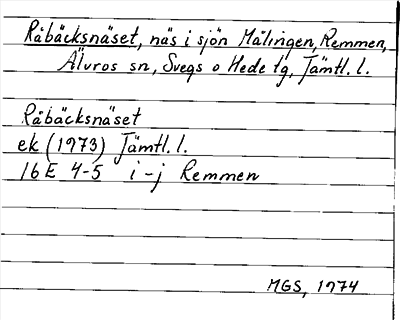 Råbäcksnäset, näs i sjön Målingen, Remmen,
Älvros sn, Svegs o Hede tg, Jämtl. l.
Råbäcksnäset
ek (1973) Jämtl. l.
16 E 4-5 i-j Remmen
MGS, 1974